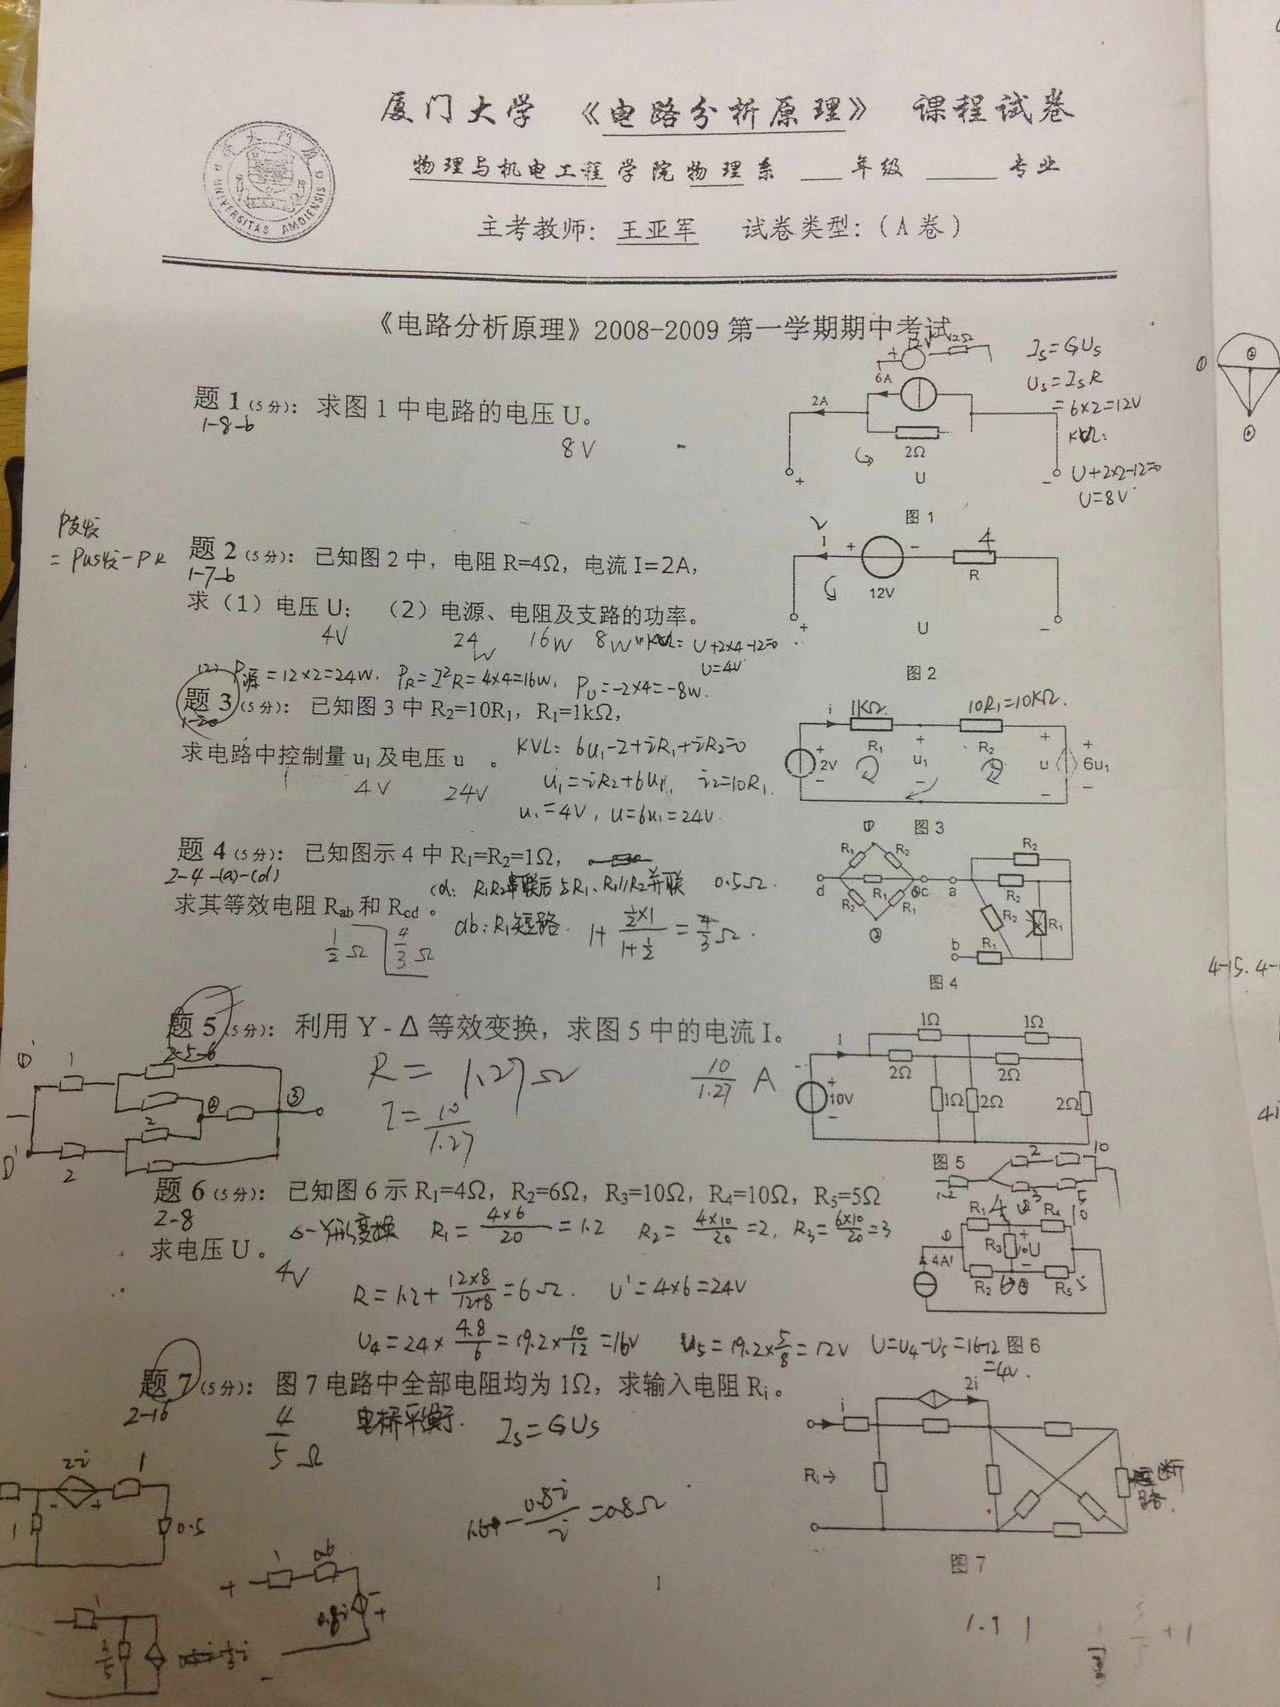 厦门大学 《电路分析原理》 课程试卷
物理与机电工程学院物理系 ___年级 _____专业
主考教师：王亚军 试卷类型：（A卷）
UNIVERSITAS AMOIENSIS
《电路分析原理》2008-2009第一学期期中考试
题1(5分)：求图1中电路的电压U。
1-8-b
8V
12V 2Ω
6A
2A
2Ω
+ U -
图1
Is=GUs
Us=IsR
=6×2=12V
KVL:
U+2×2-12=0
U=8V
P支发
=Pus发-PR
题2(5分)：已知图2中，电阻R=4Ω，电流I=2A，
1-7-b
求（1）电压U；（2）电源、电阻及支路的功率。
4V 24W 16W 8W
KVL: U+2×4-12=0
U=4V
2 I + - 4
12V R
+ U -
图2
(2) P源=12×2=24W. PR=I²R=4×4=16W, PU=-2×4=-8W.
题3(5分)：已知图3中R₂=10R₁，R₁=1kΩ，
1-20
求电路中控制量u₁及电压u 。
4V 24V
KVL: 6u₁-2+iR₁+iR₂=0
u₁=iR₂+6u₁, i₂=10R₁.
u₁=4V, u=6u₁=24V.
i 1KΩ 10R₁=10KΩ.
R₁ R₂
2V u₁ u 6u₁
图3
题4(5分)：已知图示4中R₁=R₂=1Ω，
2-4-(a)-(d)
求其等效电阻Rab和Rcd。
1/2Ω 4/3Ω
cd: R₁R₂串联后与R₁、R₁//R₂并联 0.5Ω.
ab: R₁短路. 1+(1/2×1)/(1+1/2)=4/3Ω.
① R₁ R₂
d R₁ c a
R₂ R₁
②
R₂ R₂ R₂ R₁
b R₁
图4
4-15.
题5(5分)：利用Y-Δ等效变换，求图5中的电流I。
2-5-6
R= 1.27Ω
I=10/1.27
10/1.27 A
I 1Ω 1Ω
2Ω 2Ω
10V 1Ω 2Ω 2Ω
图5
题6(5分)：已知图6示R₁=4Ω，R₂=6Ω，R₃=10Ω，R₄=10Ω，R₅=5Ω
2-8
求电压U。
4V
Δ-Y形变换 R₁=4×6/20=1.2 R₂=4×10/20=2, R₃=6×10/20=3
R=1.2+12×8/(12+8)=6Ω. U'=4×6=24V
U₄=24×4.8/6=19.2×10/12=16V U₅=19.2×5/8=12V U=U₄-U₅=16-12
=4V.
1.2 2 10 3 5
R₁ 4 R₄ 10
4A R₃ 10 U
R₂ 6 R₅ 5
图6
题7(5分)：图7电路中全部电阻均为1Ω，求输入电阻Ri。
2-16
4/5 Ω
电桥平衡. Is=GUs
-0.8i/i=0.8Ω
i 2i
Ri→
断路.
图7
2i 1
1 0.5
0.8i
1